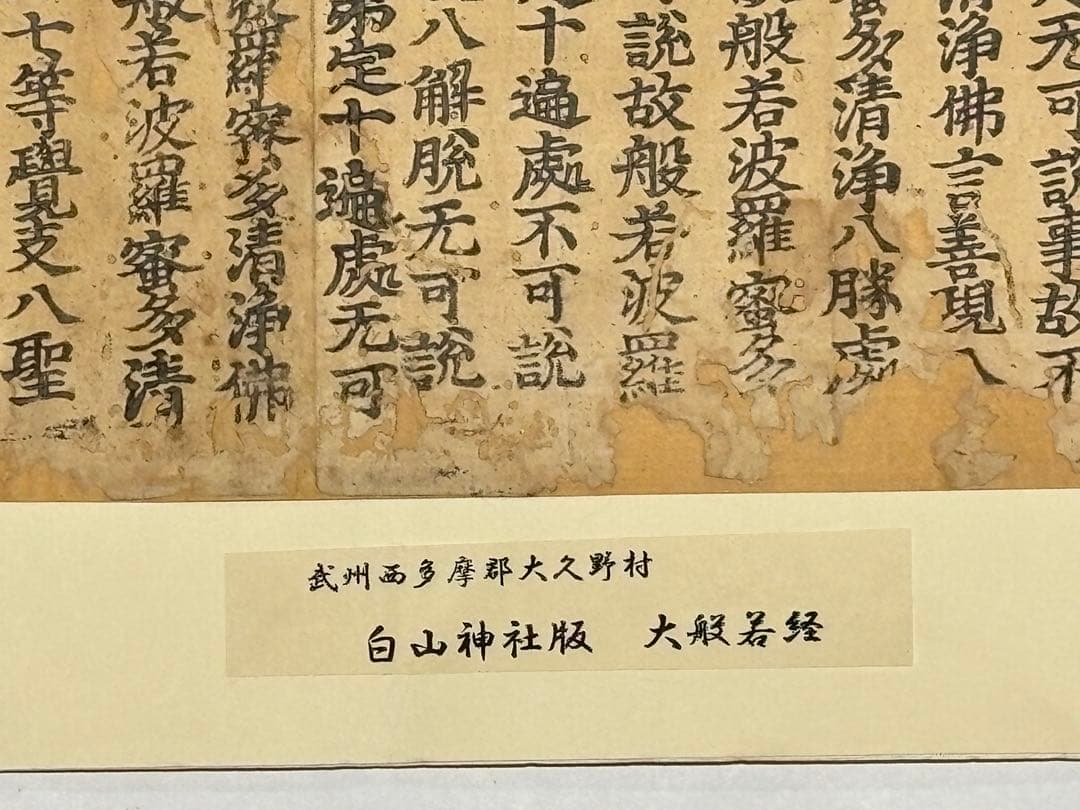 无可說事故不
清淨佛言善現八
蜜多清淨八勝處
般若波羅蜜多
說故般若波羅
十遍處不可說
八解脫无可說
第定十遍處无可
羅蜜多清淨佛
般若波羅蜜多清
七等覺支八聖
武州西多摩郡大久野村
白山神社版　大般若経